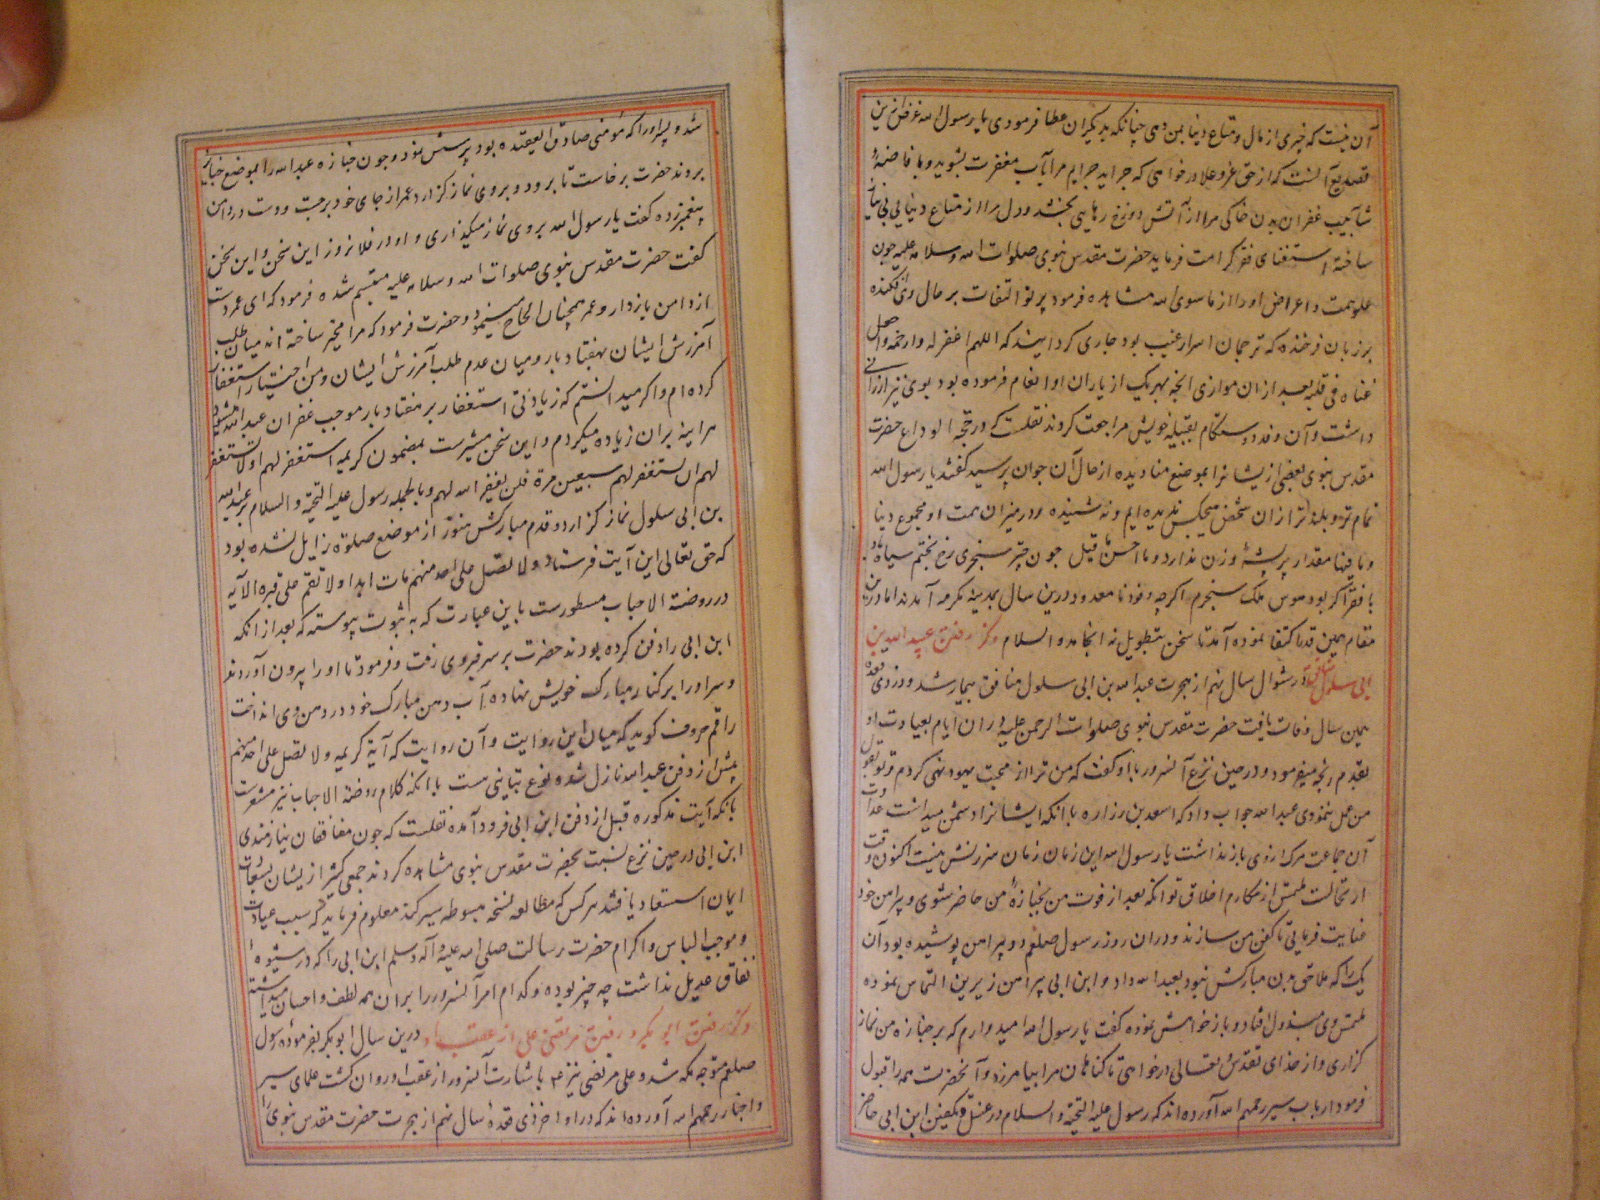 آن نیست که چیزی از مال و متاع دنیا بمن دهی چنانکه بدیگران عطا فرمودی یا رسول الله غرض من
آنست که از حق عز و علا درخواهی که جراید جرایم مرا بآب مغفرت بشوید و
غفران بدن خاکی مرا از آتش دوزخ رهایی بخشد و دل مرا از متاع دنیایی بی نیاز
ساخته استغنای فقر کرامت فرماید حضرت مقدس نبوی صلوات الله و سلامه علیه چون
علو همت و اعراض او را از ما سوی الله مشاهده فرمود پرتو التفات بر حال وی افکنده
بر زبان فرخنده که ترجمان اسرار غیب بود جاری گردانید که اللهم اغفر له وارحمه واجعل
غناه فی قلبه بعد از ان موازی انچه بهر یک از یاران او انعام فرموده بود بوی نیز ارزانی
داشت و آن وفد دوستکام بقبیله خویش مراجعت کردند نقلست که در حجة الوداع حضرت
مقدس نبوی بعضی از یشانرا بموضع منا دیده از حال آن جوان پرسید گفتند یا رسول الله
تمام تر و بلند تر از ان شخص هیچکس ندیده ایم و نه شنیده و در میزان همت او مجموع دنیا
و ما فیها مقدار پر پشهٔ وزن ندارد و ما احسن ما قیل چون چتر سنجری رخ بختم سیاه باد
با فقر اگر بود هوس ملک سنجرم اگرچه وفود نا معدود درین سال بمدینه مکرمه آمدند اما درین
مقام بهمین قدر اکتفا نموده آمد تا سخن بتطویل نه انجامد و السلام ذکر رفتن عبدالله بن
ابی سلول در شوال سال نهم از هجرت عبدالله بن ابی سلول منافق بیمار شد و در ذی قعده
همین سال وفات یافت حضرت مقدس نبوی صلوات الرحمن علیه در ان ایام بعیادت او
قدم رنجه میفرمود و در حین نزع آنسرور با او گفت که من ترا از محبت یهود نهی کردم و تو بقول
من عمل ننمودی عبدالله جواب داد که اسعد بن زراره با انکه ایشانرا دشمن میداشت عداوت
آن جماعت مرگ از وی باز نداشت یا رسول الله این زمان زمان سرزنش نیست اکنون وقت
ارتحالست ملتمس از مکارم اخلاق تو انکه بعد از فوت من بجنازهٔ من حاضر شوی و پیراهن خود
عنایت فرمایی تا کفن من سازند و دران روز رسول صلعم دو پیراهن پوشیده بود آن
یک را که ملاقی بدن مبارکش نبود بعبد الله داد و ابن ابی پیراهن زیرین التماس نموده
ملتمس وی مبذول افتاد و باز خواهش نموده گفت یا رسول الله امیدوارم که بر جنازه من نماز
گزاری و از خدای تقدس و تعالی درخواهی تا گناهان مرا بیامرزد و آنحضرت همه را قبول
فرمود ارباب سیر رحمهم الله آورده اند که رسول علیه التحیة و السلام در غسل و تکفین ابن ابی حاضر
شد و پسر او را که مؤمنی صادق العقیده بود پرسش نمود و چون جنازه عبدالله را بموضع جنائز
بردند حضرت برخاست تا برود و بر وی نماز گزارد عمر از جای خود برجست و دست در دامن
پیغمبر زده گفت یا رسول الله بر وی نماز میگذاری و او در فلان روز این سخن و این سخن
گفت حضرت مقدس نبوی صلوات الله و سلامه علیه متبسم شده فرمود که ای عمر دست
از دامن باز دار و عمر همچنان الحاح مینمود و حضرت فرمود که مرا مخیر ساخته اند میان طلب
آمرزش ایشان بهفتاد بار و میان عدم طلب آمرزش ایشان و من اختیار استغفار
کرده ام و اگر میدانستم که زیادتی استغفار بر هفتاد بار موجب غفران عبدالله میشود
هر اینه بران زیاده میکردم و این سخن مشیرست بمضمون کریمه استغفر لهم او لا تستغفر
لهم ان تستغفر لهم سبعین مرة فلن یغفر الله لهم و بالجمله رسول علیه التحیة و السلام بر عبدالله
بن ابی سلول نماز گزارد و قدم مبارکش هنوز از موضع صلوة زایل نشده بود
که حق تعالی این آیت فرستاد و لا تصل علی احد منهم مات ابدا و لا تقم علی قبره الآیه
در روضة الاحباب مسطورست باین عبارت که به ثبوت پیوسته که بعد از انکه
ابن ابی را دفن کرده بودند حضرت بر سر قبر وی رفت و فرمود تا او را بیرون آوردند
و سر او را بر کنار مبارک خویش نهاده آب دهن مبارک خود در دهن وی انداخت
راقم حروف گوید که میان این روایت و آن روایت که آیهٔ کریمه و لا تصل علی احد منهم
پیش از دفن عبدالله نازل شده نوع تباینی ست با انکه کلام روضة الاحباب نیز مشعرست
بانکه آیت مذکوره قبل از دفن ابن ابی فرود آمده نقلست که چون منافقان نیازمندی
ابن ابی در حین نزع نسبت بحضرت مقدس نبوی مشاهده کردند جمعی کثیر از یشان بسعادت
ایمان استسعاد یافتند هر کس که مطالعه نسخه مبسوطه سیر کند معلوم فرماید که سبب عیادت
و موجب الباس و اکرام حضرت رسالت صلی الله علیه و آله و سلم ابن ابی را که در شیوهٔ
نفاق عدیل نداشت چه چیز بوده و کدام امر آنسرور را بران همه لطف و احسان میداشته
ذکر رفتن ابو بکر و رفتن مرتضی علی از عقب او درین سال ابو بکر بفرموده رسول
صلعم متوجه مکه شد و علی مرتضی نیز هم باشارت آنسرور از عقب او روان گشت علمای سیر
و اخبار رحمهم الله آورده اند که در اواخر ذی قعده سال نهم از هجرت حضرت مقدس نبوی را